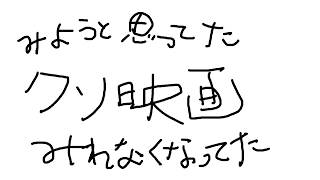 みようと思ってた
クソ映画
みれなくなってた